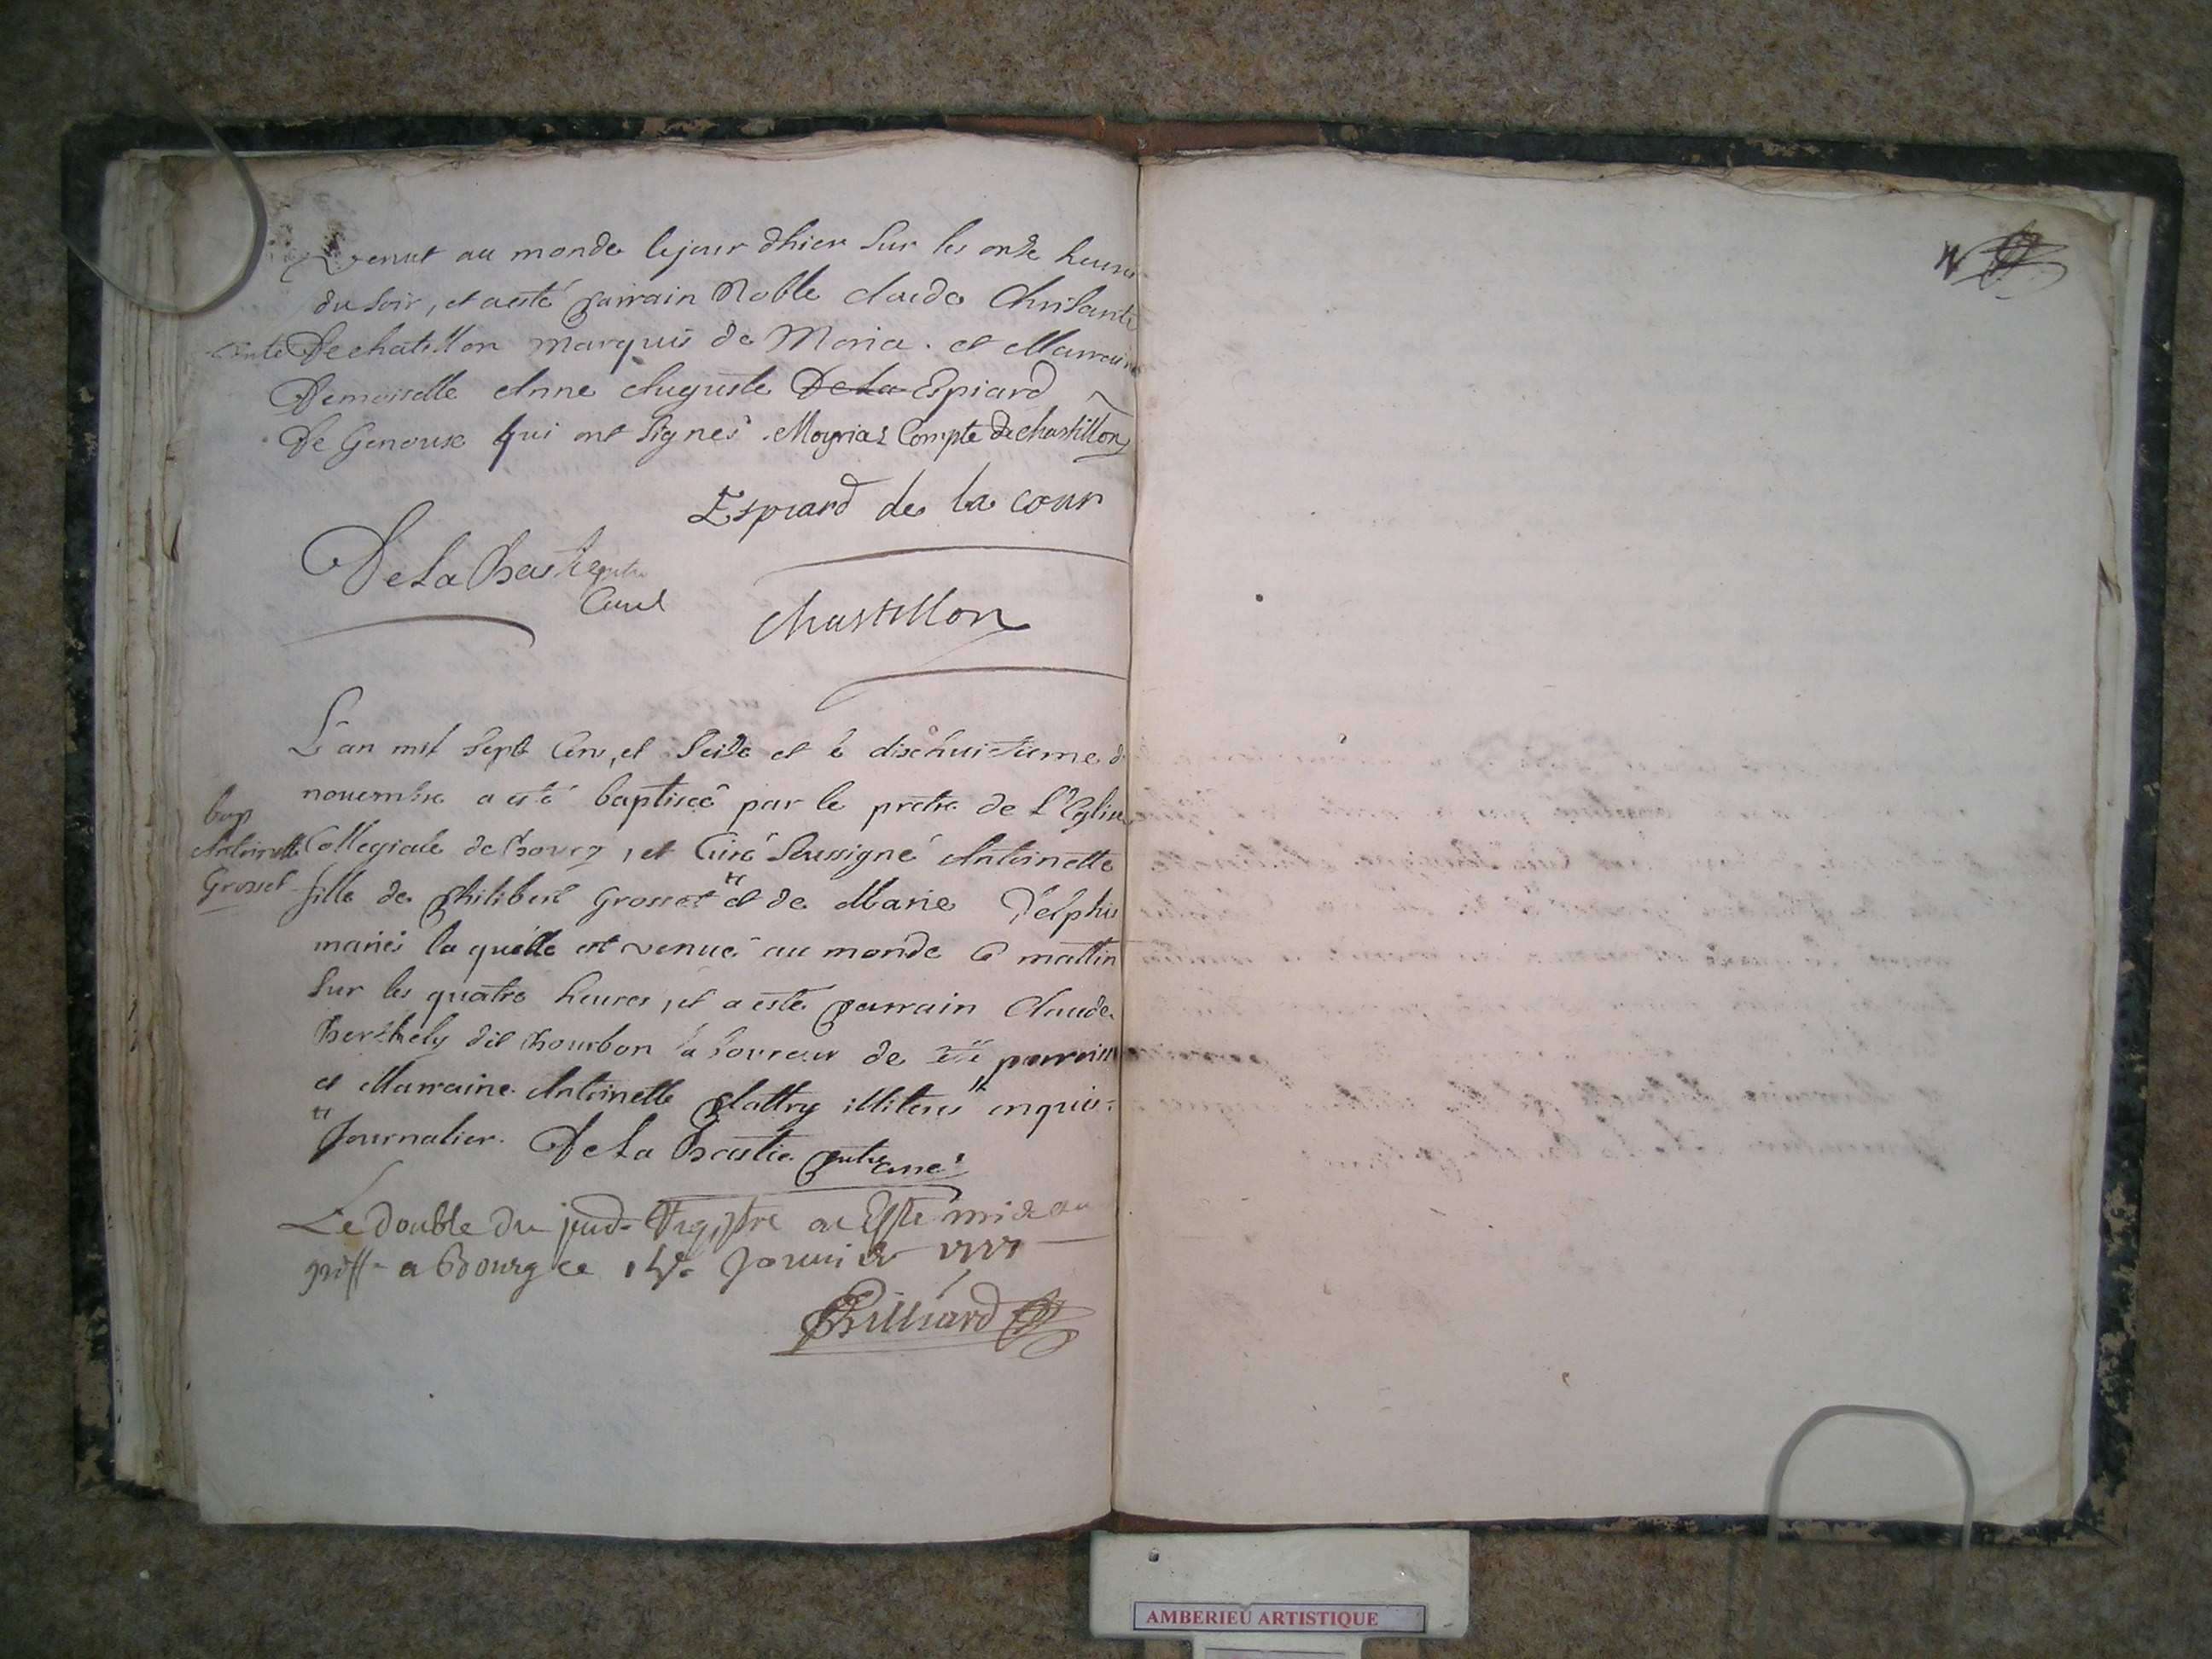 venut au monde le jour dhier sur les onze heures
du soir, et a esté parrain Noble claude Chrisante
Comte De chatillon marquis de Moria. et Marraine
Demoiselle Anne Auguste De La Espiard
De Genouse qui ont signés. Moyria Compte de chastillon
Espiard de la cour
De La Bastie prtre
Curé
chastillon
L'an mil sept Cens, et Seize et le dixhuitieme de
novembre a esté baptiseé par le pretre de L'Eglise
bap
Antoinette
Grosset
Collegiale de bourg, et Curé Soussigné Antoinette
fille de Philibert Grosset et de Marie Delphis
mariés la quelle est venue au monde ce mattin
Sur les quatre heures, et a esté parrain Claude
Berthely dit bourbon laboureur de parroisse
et Marraine Antoinette Plattry illiterés enquis.
Journalier. De La Bastie prtre curé
Le double du registre a Esté mis au
greff a Bourg ce Janvier 1717
Billiard
AMBERIEU ARTISTIQUE